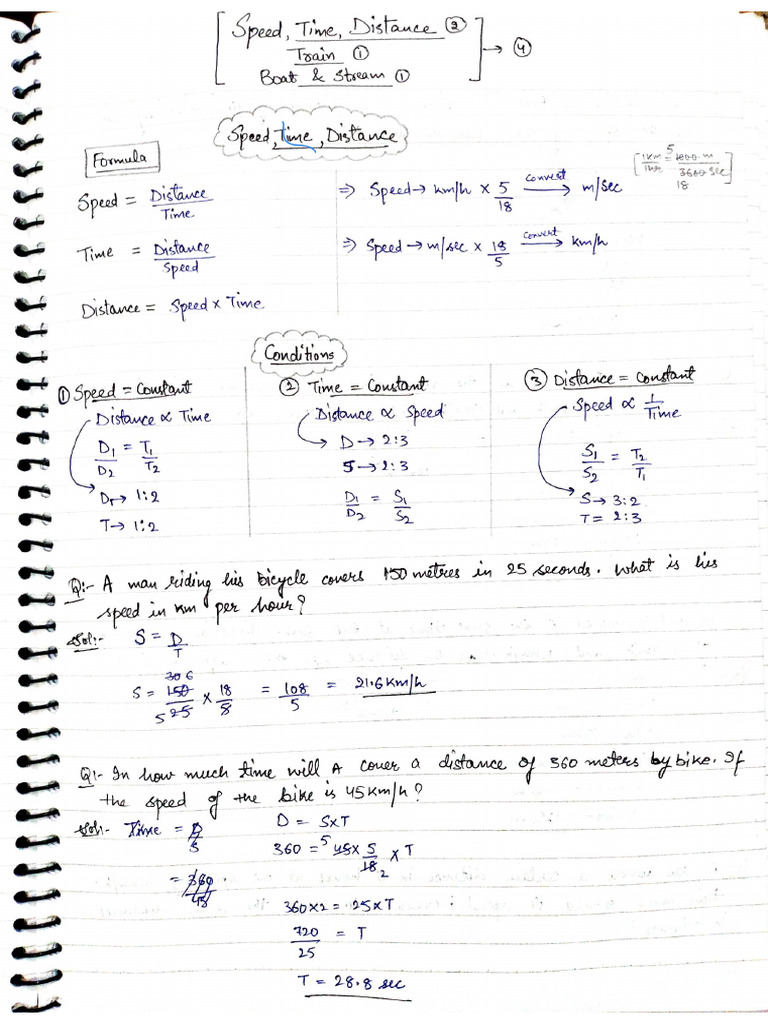 Speed, Time, Distance ②
Train ① → ④
Boat & Stream ①
Speed, Time, Distance
Formula
[1km/1hr = 5 1000 m/3600 sec 18]
Speed = Distance/Time
⇒ Speed → km/h × 5/18 convert → m/sec
Time = Distance/Speed
⇒ Speed → m/sec × 18/5 convert → km/h
Distance = Speed × Time
Conditions
① Speed = Constant
Distance ∝ Time
D1/D2 = T1/T2
Dr → 1:2
T → 1:2
② Time = Constant
Distance ∝ Speed
D → 2:3
S → 2:3
D1/D2 = S1/S2
③ Distance = Constant
Speed ∝ 1/Time
S1/S2 = T2/T1
S → 3:2
T = 2:3
Q:- A man riding his bicycle covers 150 metres in 25 seconds. What is his
speed in km per hour?
Sol:- S = D/T
S = 30 6 150/5 25 × 18/5 = 108/5 = 21.6 km/h
Q:- In how much time will A cover a distance of 360 meters by bike. If
the speed of the bike is 45 km/h?
Sol:- Time = D/S
= 360/45
D = S×T
360 = 5 45 × 5/18 2 × T
360×2 = 25×T
720/25 = T
T = 28.8 sec